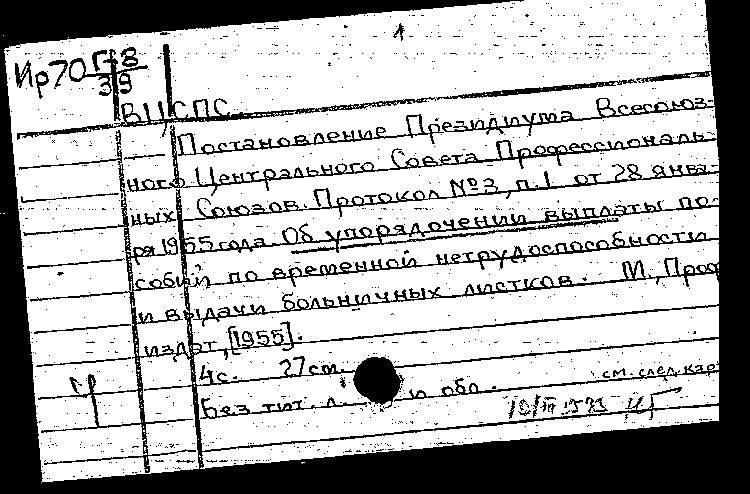 1
Ир70 Г-8
39
ВЦСПС
Постановление Президиума Всесоюз-
ного Центрального Совета Профессиональ-
ных Союзов. Протокол №3, п.1 от 28 янва-
ря 1955 года. Об упорядочении выплаты по-
собий по временной нетрудоспособности
и выдачи больничных листков. М., Проф
издат, [1955].
4с. 27см.
Без тит. л. и обл.
см. след. кар